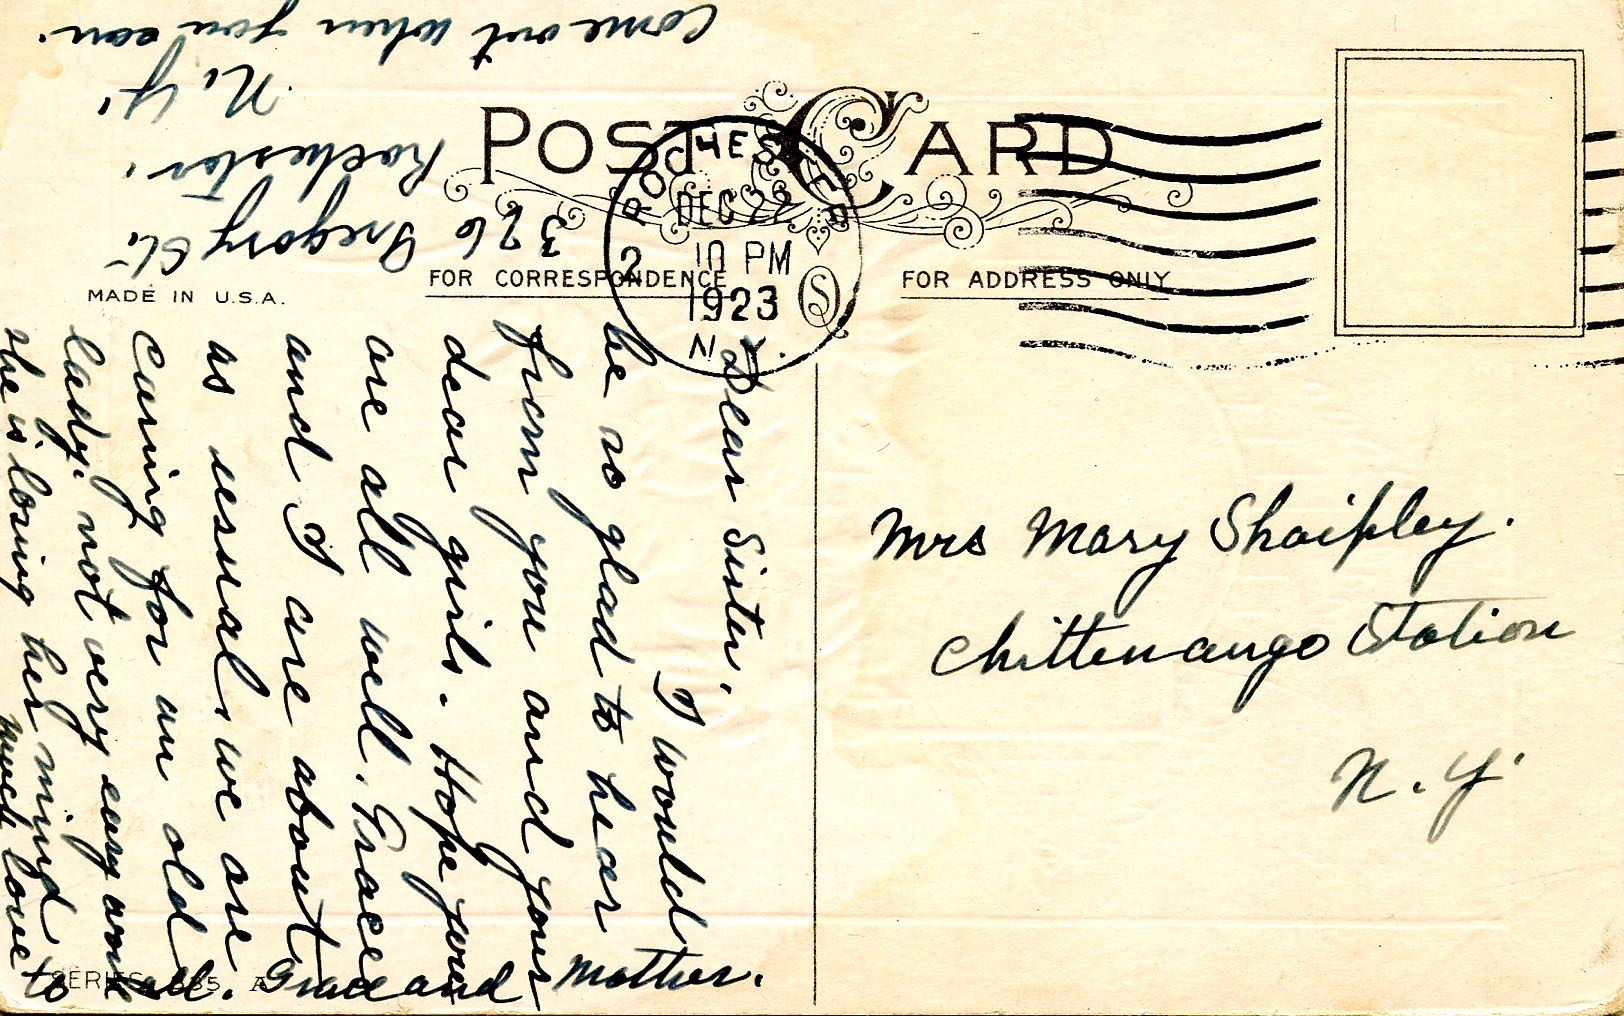 POST CARD
FOR CORRESPONDENCE
FOR ADDRESS ONLY
MADE IN U.S.A.
ROCHESTER
DEC 22
10 PM
1923
N.Y.
2
S
Mrs Mary Shaipley.
Chittenango Station
N.Y.
Dear Sister,
I would
be so glad to hear
from you and your
dear girls. Hope you
are all well. Grace
and I are about
as usual, we are
caring for an old
lady. not very easy work
she is losing her mind
much love
to all. Grace and Mother.
376 Gregory St.
Rochester,
N.Y.
Come out when you can.
SERIES